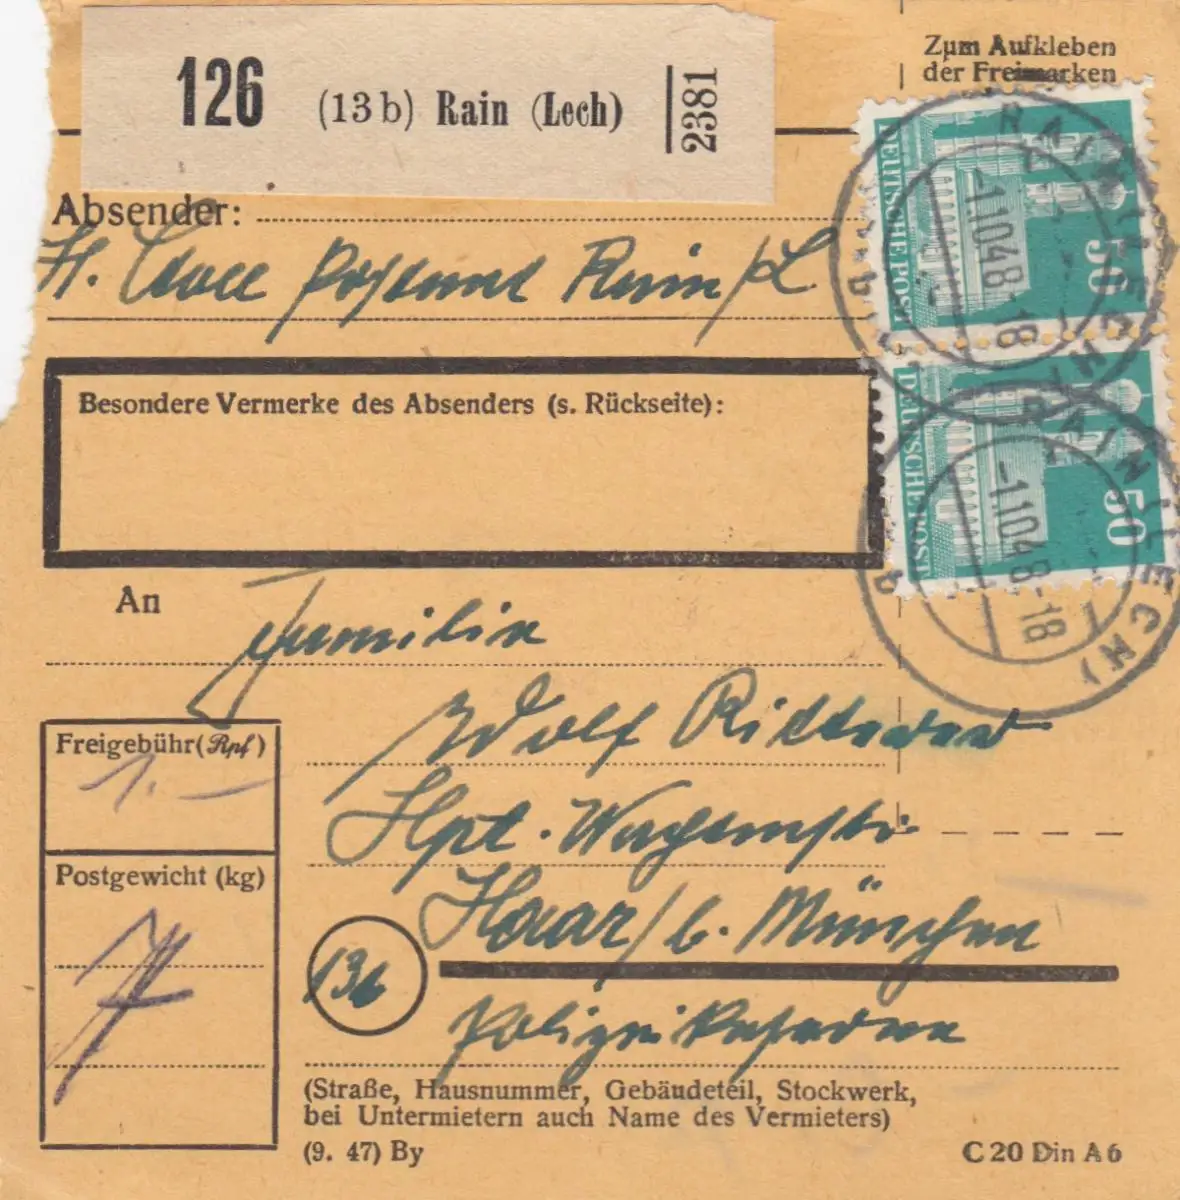 Zum Aufkleben
der Freimarken
126 (13b) Rain (Lech) 2381
Absender:
H. Postamt Rain/L
DEUTSCHE POST 50
RAIN (LECH)
-1.10.48-18
a
Besondere Vermerke des Absenders (s. Rückseite):
DEUTSCHE POST 50
RAIN (LECH)
-1.10.48-18
a
An
Familie
Adolf
Freigebühr (Rpf)
1.—
Hpt. Wachtmstr.
Postgewicht (kg)
7
Haar/b. München
13b
Polizeikaserne
(Straße, Hausnummer, Gebäudeteil, Stockwerk,
bei Untermietern auch Name des Vermieters)
(9. 47) By
C 20 Din A 6